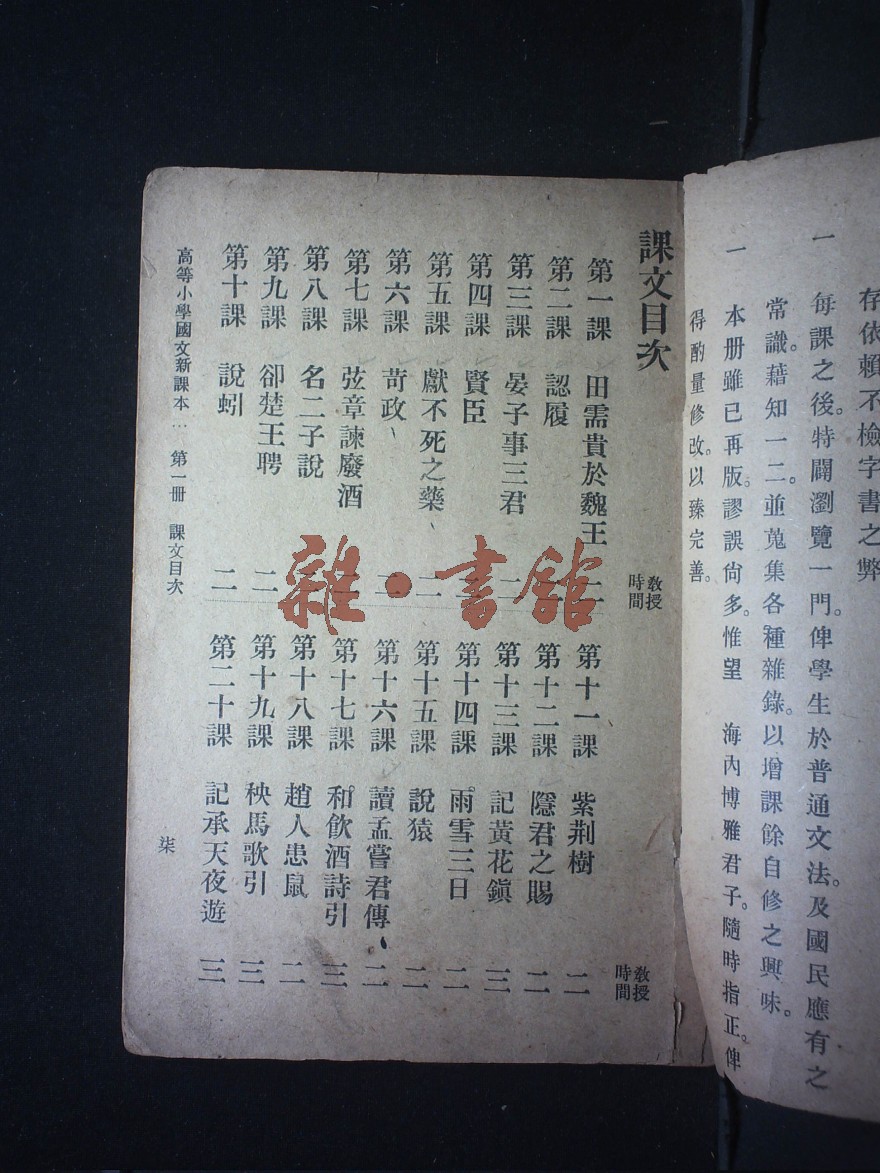 存依賴不檢字書之弊
一 每課之後。特闢瀏覽一門。俾學生於普通文法。及國民應有之
常識。藉知一二。並蒐集各種雜錄。以增課餘自修之興味。
一 本册雖已再版。謬誤尙多。惟望 海內博雅君子。隨時指正。俾
得酌量修改。以臻完善。
課文目次
教授時間
第一課 田需貴於魏王 二
第二課 認履
第三課 晏子事三君
第四課 賢臣
第五課 獻不死之藥 二
第六課 苛政 二
第七課 弦章諫廢酒
第八課 名二子說
第九課 卻楚王聘 二
第十課 說蚓 二
教授時間
第十一課 紫荆樹 二
第十二課 隱君之賜 二
第十三課 記黃花鎭 三
第十四課 雨雪三日 二
第十五課 說猿 二
第十六課 讀孟嘗君傳 二
第十七課 和飲酒詩引 三
第十八課 趙人患鼠 二
第十九課 秧馬歌引 三
第二十課 記承天夜遊 三
高等小學國文新課本 … 第一册 課文目次
柒
雜·書館